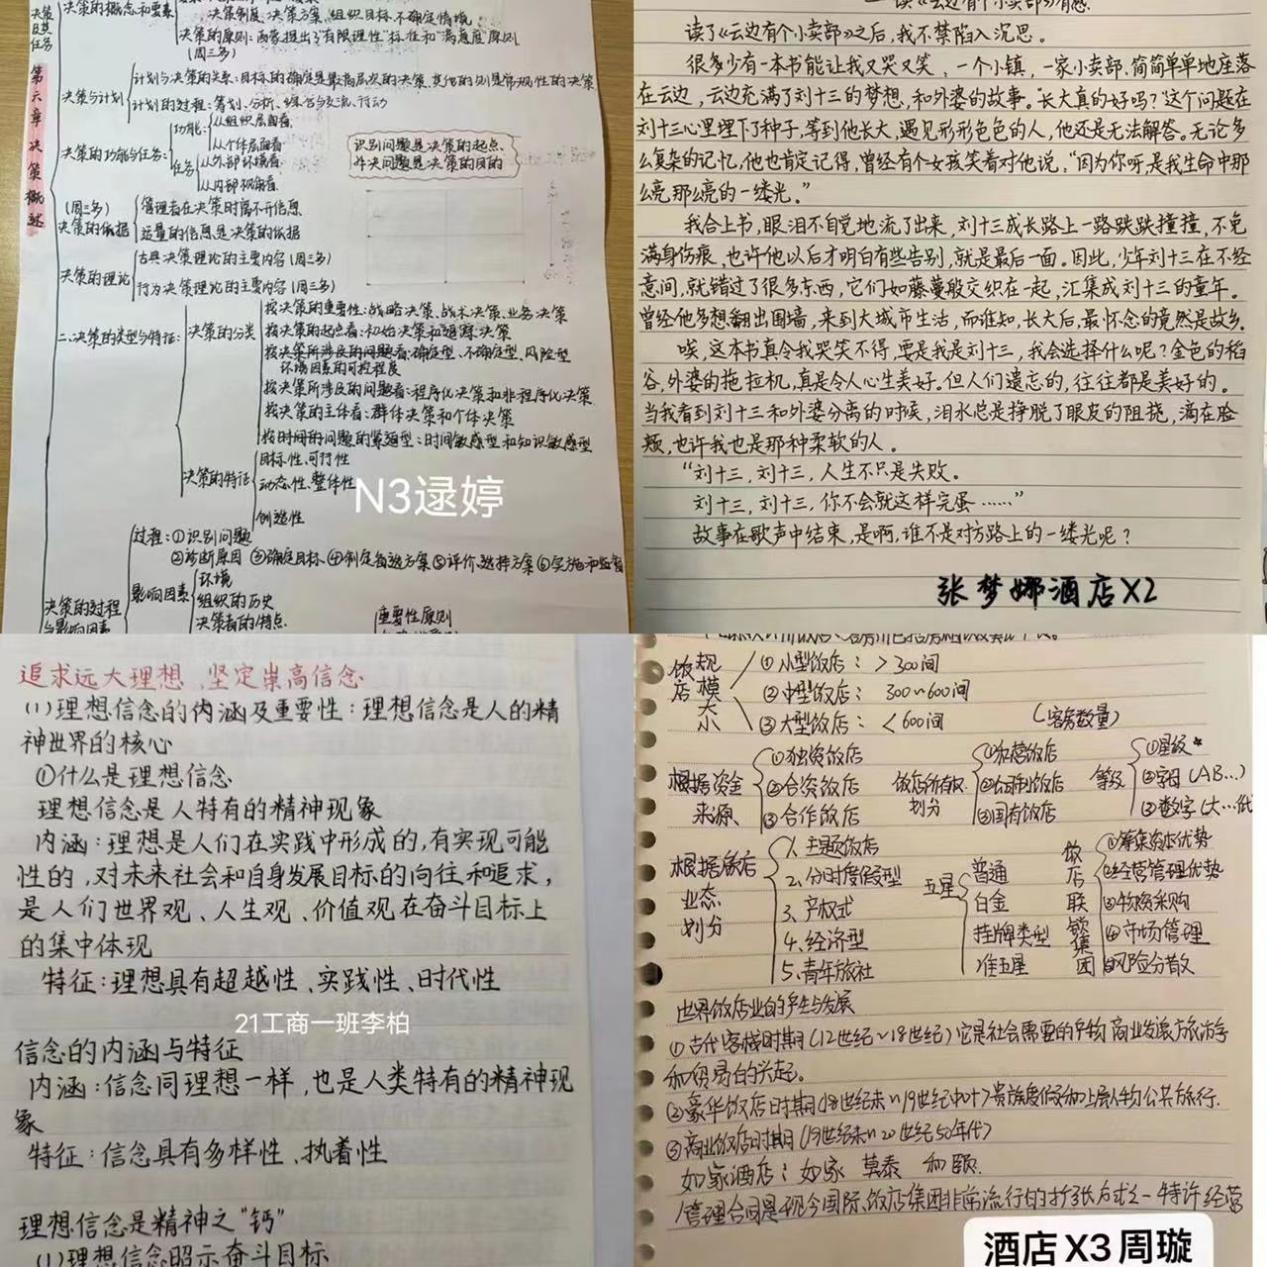 决策的概念和要素
决策制度、决策方案、组织目标、不确定情境
决策的原则:西蒙提出了"有限理性"标准和"满意度"原则
(周三多)
第六章 决策概述
决策与计划
计划与决策的关系:目标的确定是最高层次的决策,其他的则是常规性的决策
计划的过程:筹划、分析、综合与交流、行动
决策的功能与任务:
功能:
从组织层面看
从个体层面看
任务
从外部环境看
从内部视角看
识别问题是决策的起点、
解决问题是决策的目的
(周三多)
决策的依据
管理者在决策时离不开信息
适量的信息是决策的依据
决策的理论
古典决策理论的主要内容(周三多)
行为决策理论的主要内容(周三多)
二、决策的类型与特征:
决策的分类
按决策的重要性:战略决策、战术决策、业务决策
按决策的起点看:初始决策和追踪决策
按决策所涉及的问题看:确定型、不确定型、风险型
环境因素的可控程度
按决策所涉及的问题看:程序化决策和非程序化决策
按决策的主体看:群体决策和个体决策
按时间的问题的紧迫型:时间敏感型和知识敏感型
决策的特征
目标性、可行性
动态性、整体性
创造性
N3逯婷
决策的过程
与影响因素
过程:①识别问题
②诊断原因 ③确定目标 ④制定备选方案 ⑤评价、选择方案 ⑥实施和监督
影响因素
环境
组织的历史
决策者的特点
重要性原则
读《云边有个小卖部》有感
读了《云边有个小卖部》之后,我不禁陷入沉思。
很多少有一本书能让我又哭又笑,一个小镇,一家小卖部,简简单单地座落
在云边,云边充满了刘十三的梦想,和外婆的故事。"长大真的好吗?"这个问题在
刘十三心里埋下了种子,等到他长大,遇见形形色色的人,他还是无法解答。无论多
么复杂的记忆,他也肯定记得,曾经有个女孩笑着对他说,"因为你呀,是我生命中那
么亮那么亮的一缕光。"
我合上书,眼泪不自觉地流了出来,刘十三成长路上一路跌跌撞撞,不免
满身伤痕,也许他以后才明白有些告别,就是最后一面。因此,少年刘十三在不经
意间,就错过了很多东西,它们如藤蔓般交织在一起,汇集成刘十三的童年。
曾经他多想翻出围墙,来到大城市生活,而谁知,长大后,最怀念的竟然是故乡。
唉,这本书真令我哭笑不得,要是我是刘十三,我会选择什么呢?金色的稻
谷,外婆的拖拉机,真是令人心生美好。但人们遗忘的,往往都是美好的。
当我看到刘十三和外婆分离的时候,泪水总是挣脱了眼皮的阻挠,滴在脸
颊,也许我也是那种柔软的人。
"刘十三,刘十三,人生不只是失败。
刘十三,刘十三,你不会就这样完蛋……"
故事在歌声中结束,是啊,谁不是对方路上的一缕光呢?
张梦娜酒店X2
追求远大理想、坚定崇高信念
(1)理想信念的内涵及重要性:理想信念是人的精
神世界的核心
①什么是理想信念
理想信念是人特有的精神现象
内涵:理想是人们在实践中形成的,有实现可能
性的,对未来社会和自身发展目标的向往和追求,
是人们世界观、人生观、价值观在奋斗目标上
的集中体现
特征:理想具有超越性、实践性、时代性
21工商一班李柏
信念的内涵与特征
内涵:信念同理想一样,也是人类特有的精神现
象
特征:信念具有多样性、执着性
理想信念是精神之"钙"
(1)理想信念昭示奋斗目标
饭店规模大小
①小型饭店:>300间
②中型饭店: 300~600间
③大型饭店:<600间 (客房数量)
根据资金来源
①独资饭店
②合资饭店
③合作饭店
饭店所有权划分
①私营饭店
③国有饭店
等级
①星级★
②字母(AB…)
③数字(大…低
根据饭店业态划分
1、主题饭店
2、分时度假型
3、产权式
4、经济型
5、青年旅社
五星
普通
白金
挂牌类型
准五星
饭店联锁集团
①筹集资本优势
②经营管理优势
③物资采购
④市场管理
⑤风险分散
世界饭店业的产生与发展
①古代客栈时期(12世纪~18世纪)它是社会需要的产物 商业发展、旅游等
和贸易的兴起。
②豪华饭店时期(18世纪末~19世纪中叶)贵族度假和上层人物公共旅行.
③商业饭店时期(19世纪末~20世纪50年代)
如家酒店:如家 莫泰 和颐.
管理合同是现今国际饭店集团非常流行的扩张方式之一 特许经营
酒店X3周璇